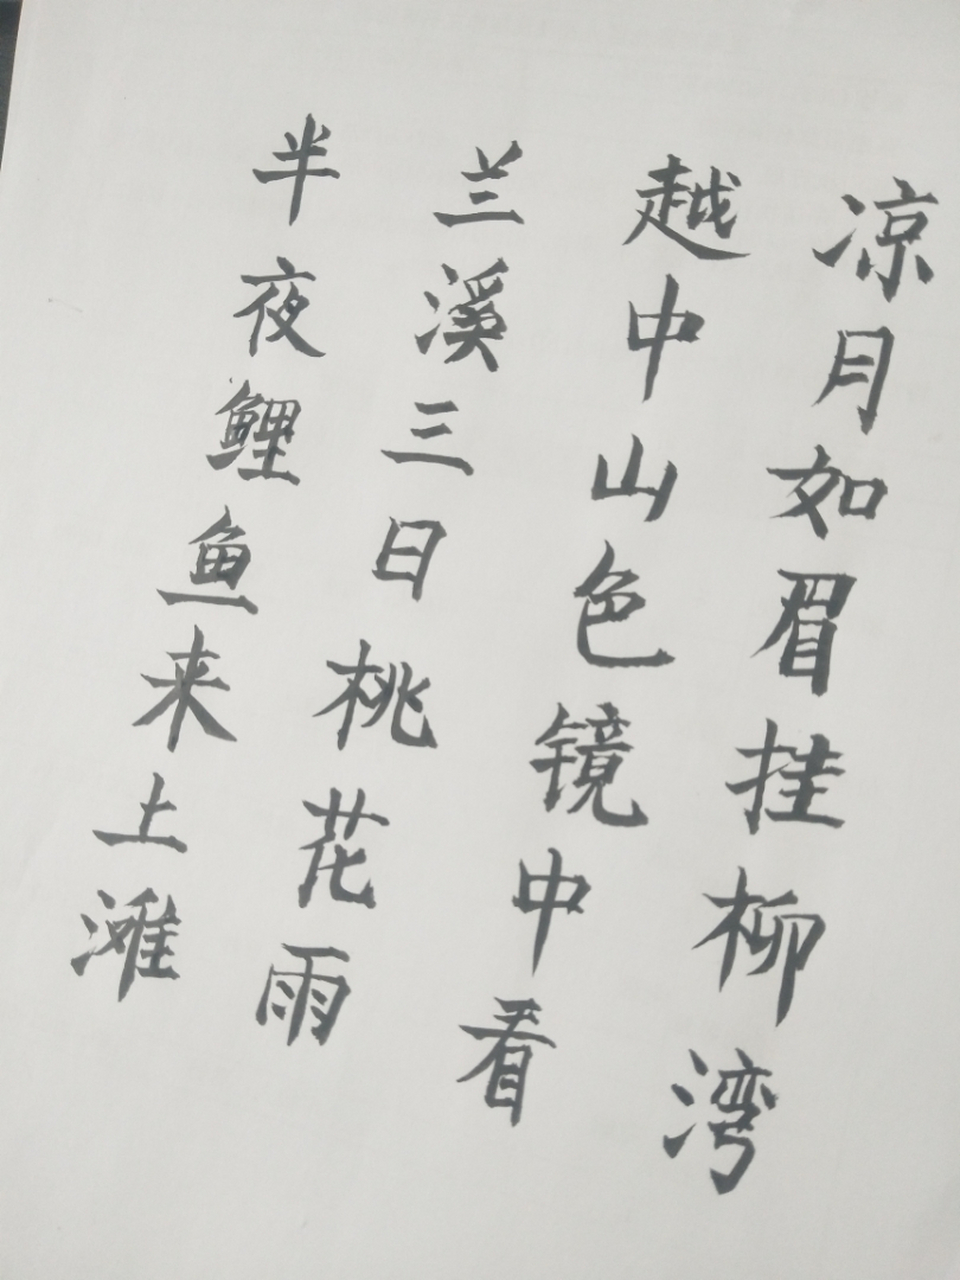 凉月如眉挂柳湾
越中山色镜中看
兰溪三日桃花雨
半夜鲤鱼来上滩